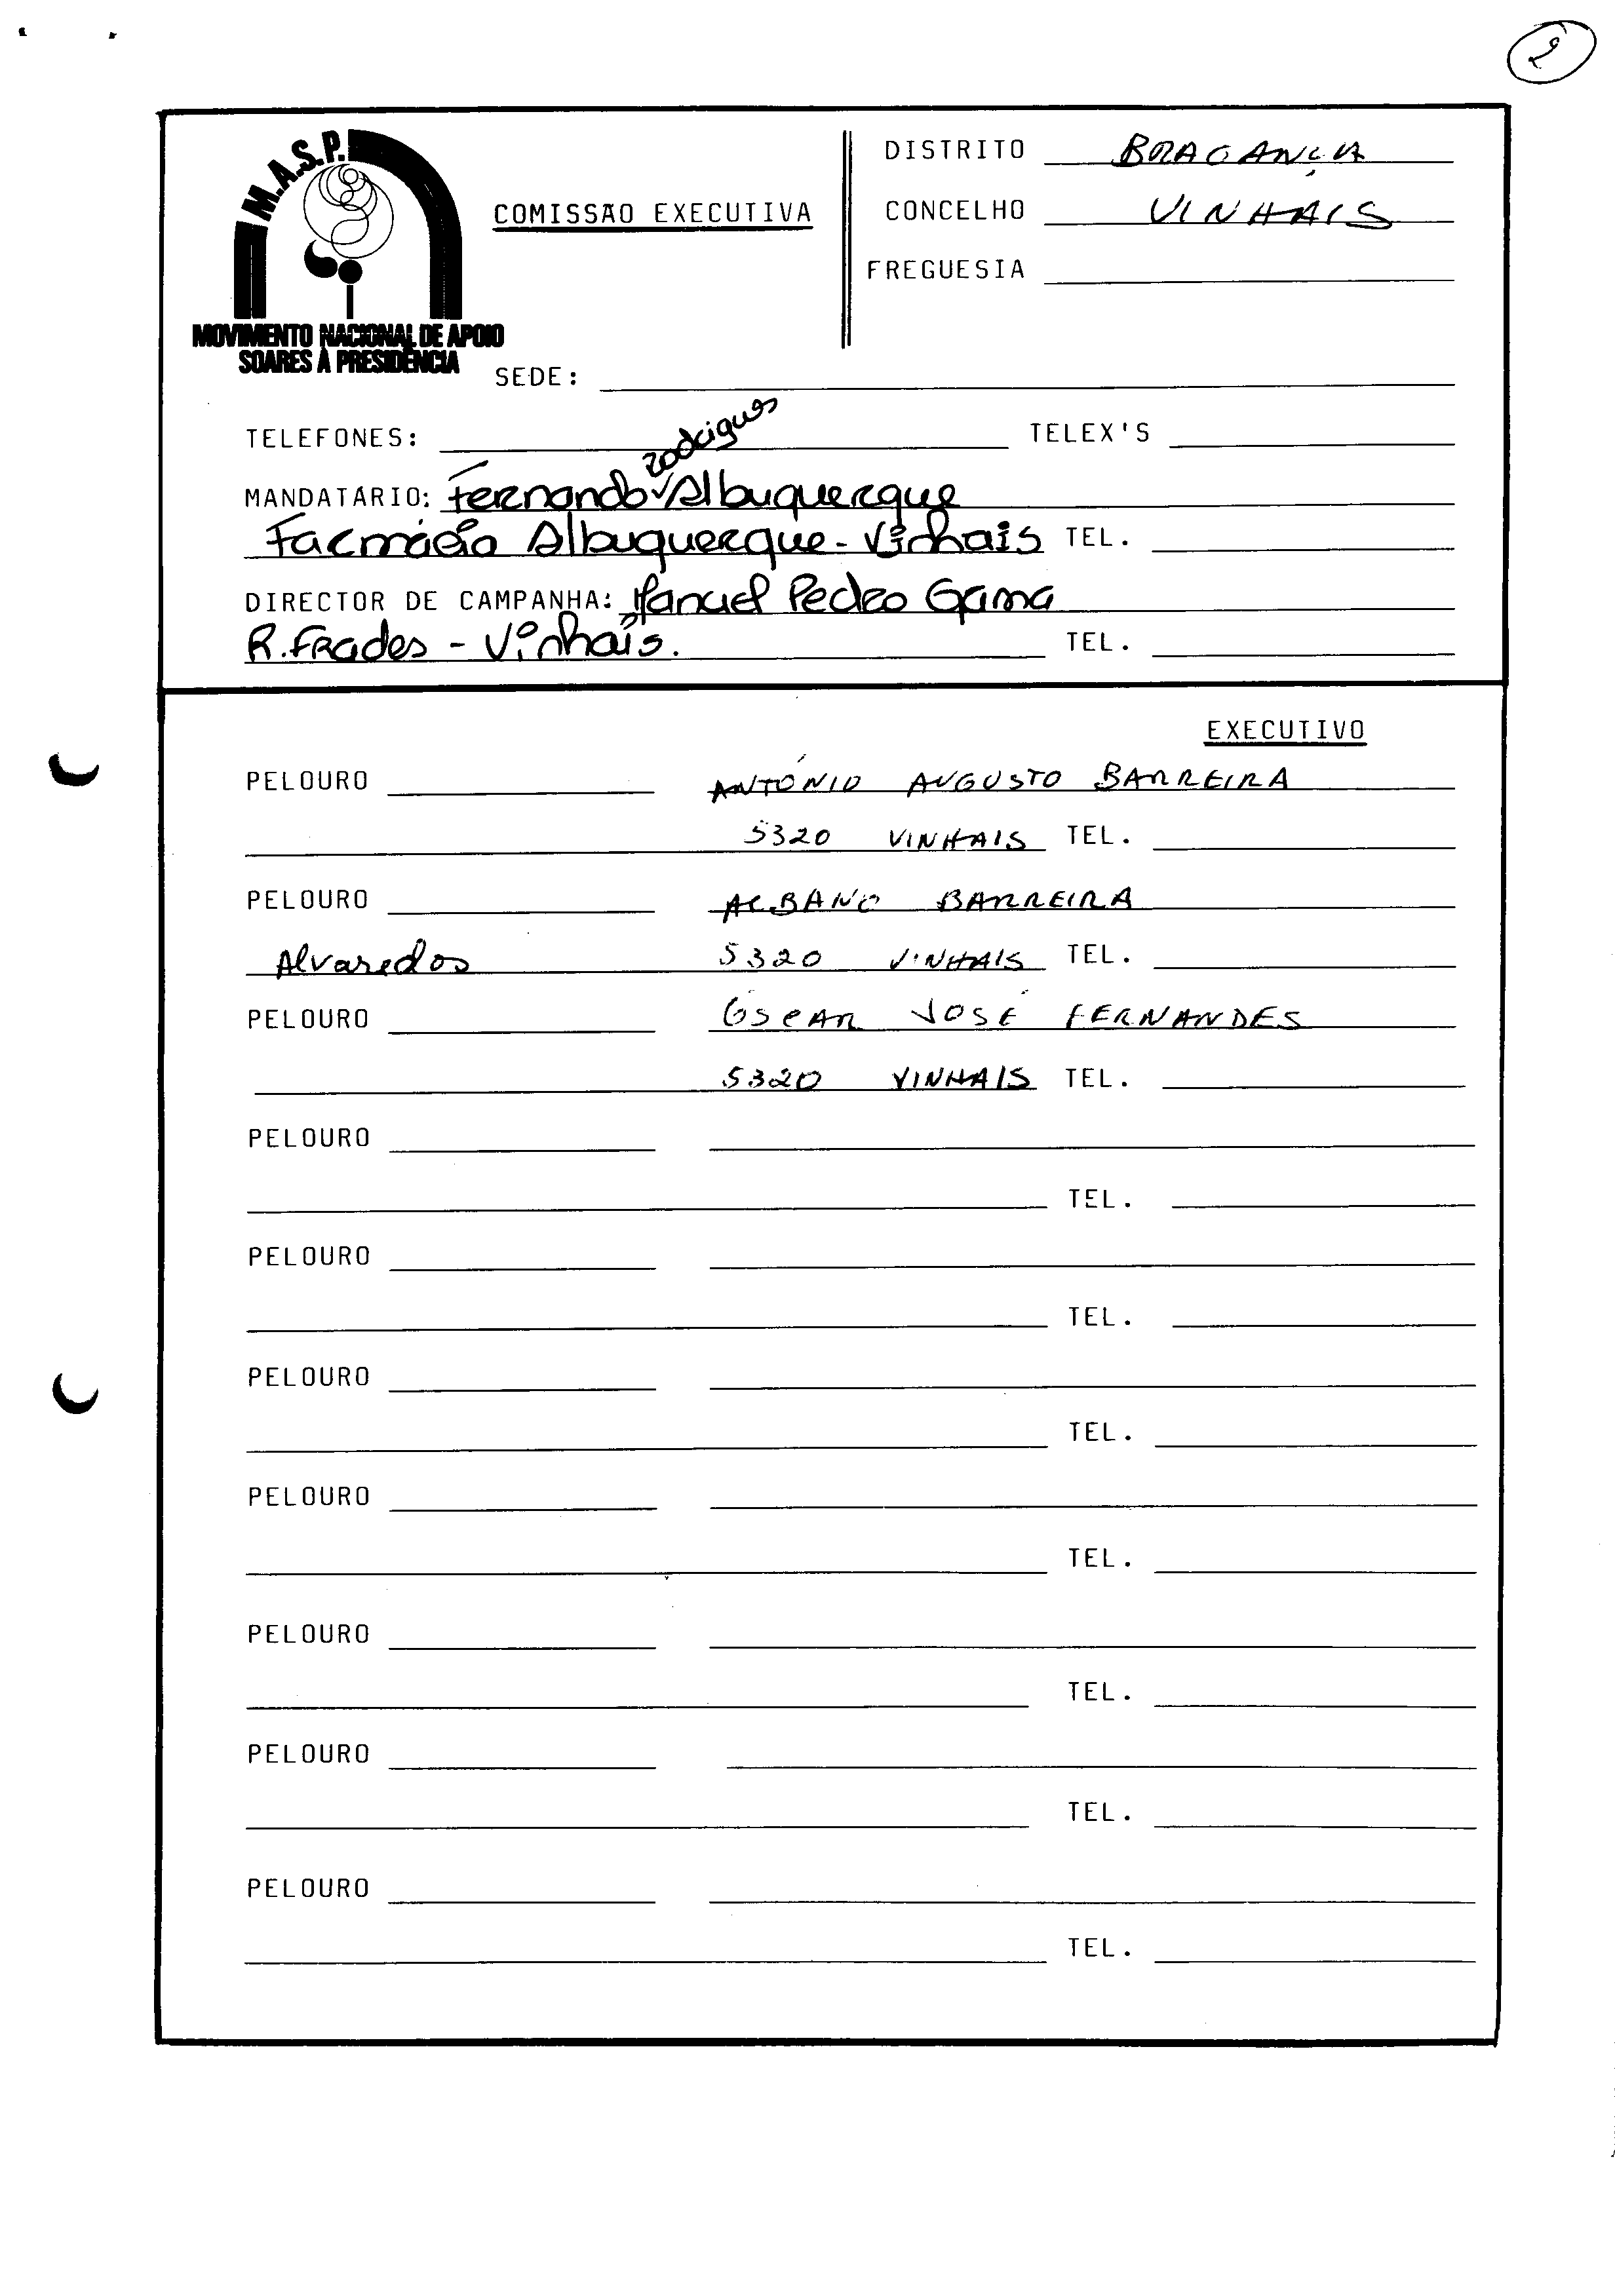 2
M.A.S.P.
MOVIMENTO NACIONAL DE APOIO
SOARES À PRESIDÊNCIA
COMISSÃO EXECUTIVA
DISTRITO BRAGANÇA
CONCELHO VINHAIS
FREGUESIA
SEDE:
TELEFONES: TELEX'S
Rodrigues
MANDATÁRIO: Fernando Albuquerque
Farmácia Albuquerque - Vinhais TEL.
DIRECTOR DE CAMPANHA: Manuel Pedro Gama
R. Frades - Vinhais. TEL.
EXECUTIVO
PELOURO ANTÓNIO AUGUSTO BARREIRA
5320 VINHAIS TEL.
PELOURO ALBANO BARREIRA
Alvaredos 5320 VINHAIS TEL.
PELOURO ÓSCAR JOSÉ FERNANDES
5320 VINHAIS TEL.
PELOURO
TEL.
PELOURO
TEL.
PELOURO
TEL.
PELOURO
TEL.
PELOURO
TEL.
PELOURO
TEL.
PELOURO
TEL.